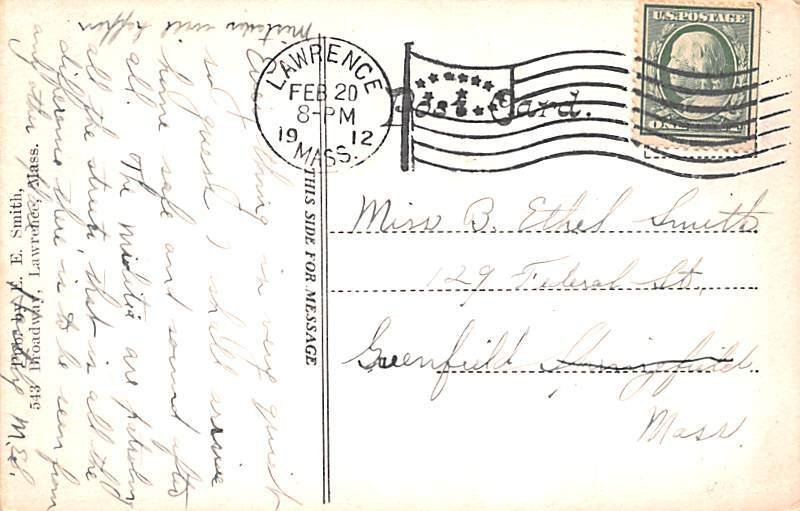 Mistakes will happen
Everything is very quiet
so I guess I shall arrive
home safe and sound after
all. The militia are patroling
all the streets that is all the
difference there is to be seen from
any other place.
M.E.S.
Pub. by F. E. Smith,
543 Broadway, Lawrence, Mass.
THIS SIDE FOR MESSAGE
LAWRENCE
FEB 20
8-PM
1912
MASS.
Post Card.
U.S. POSTAGE
Miss B. Ethel Smith
129 Federal St.,
Greenfield Springfield
Mass.